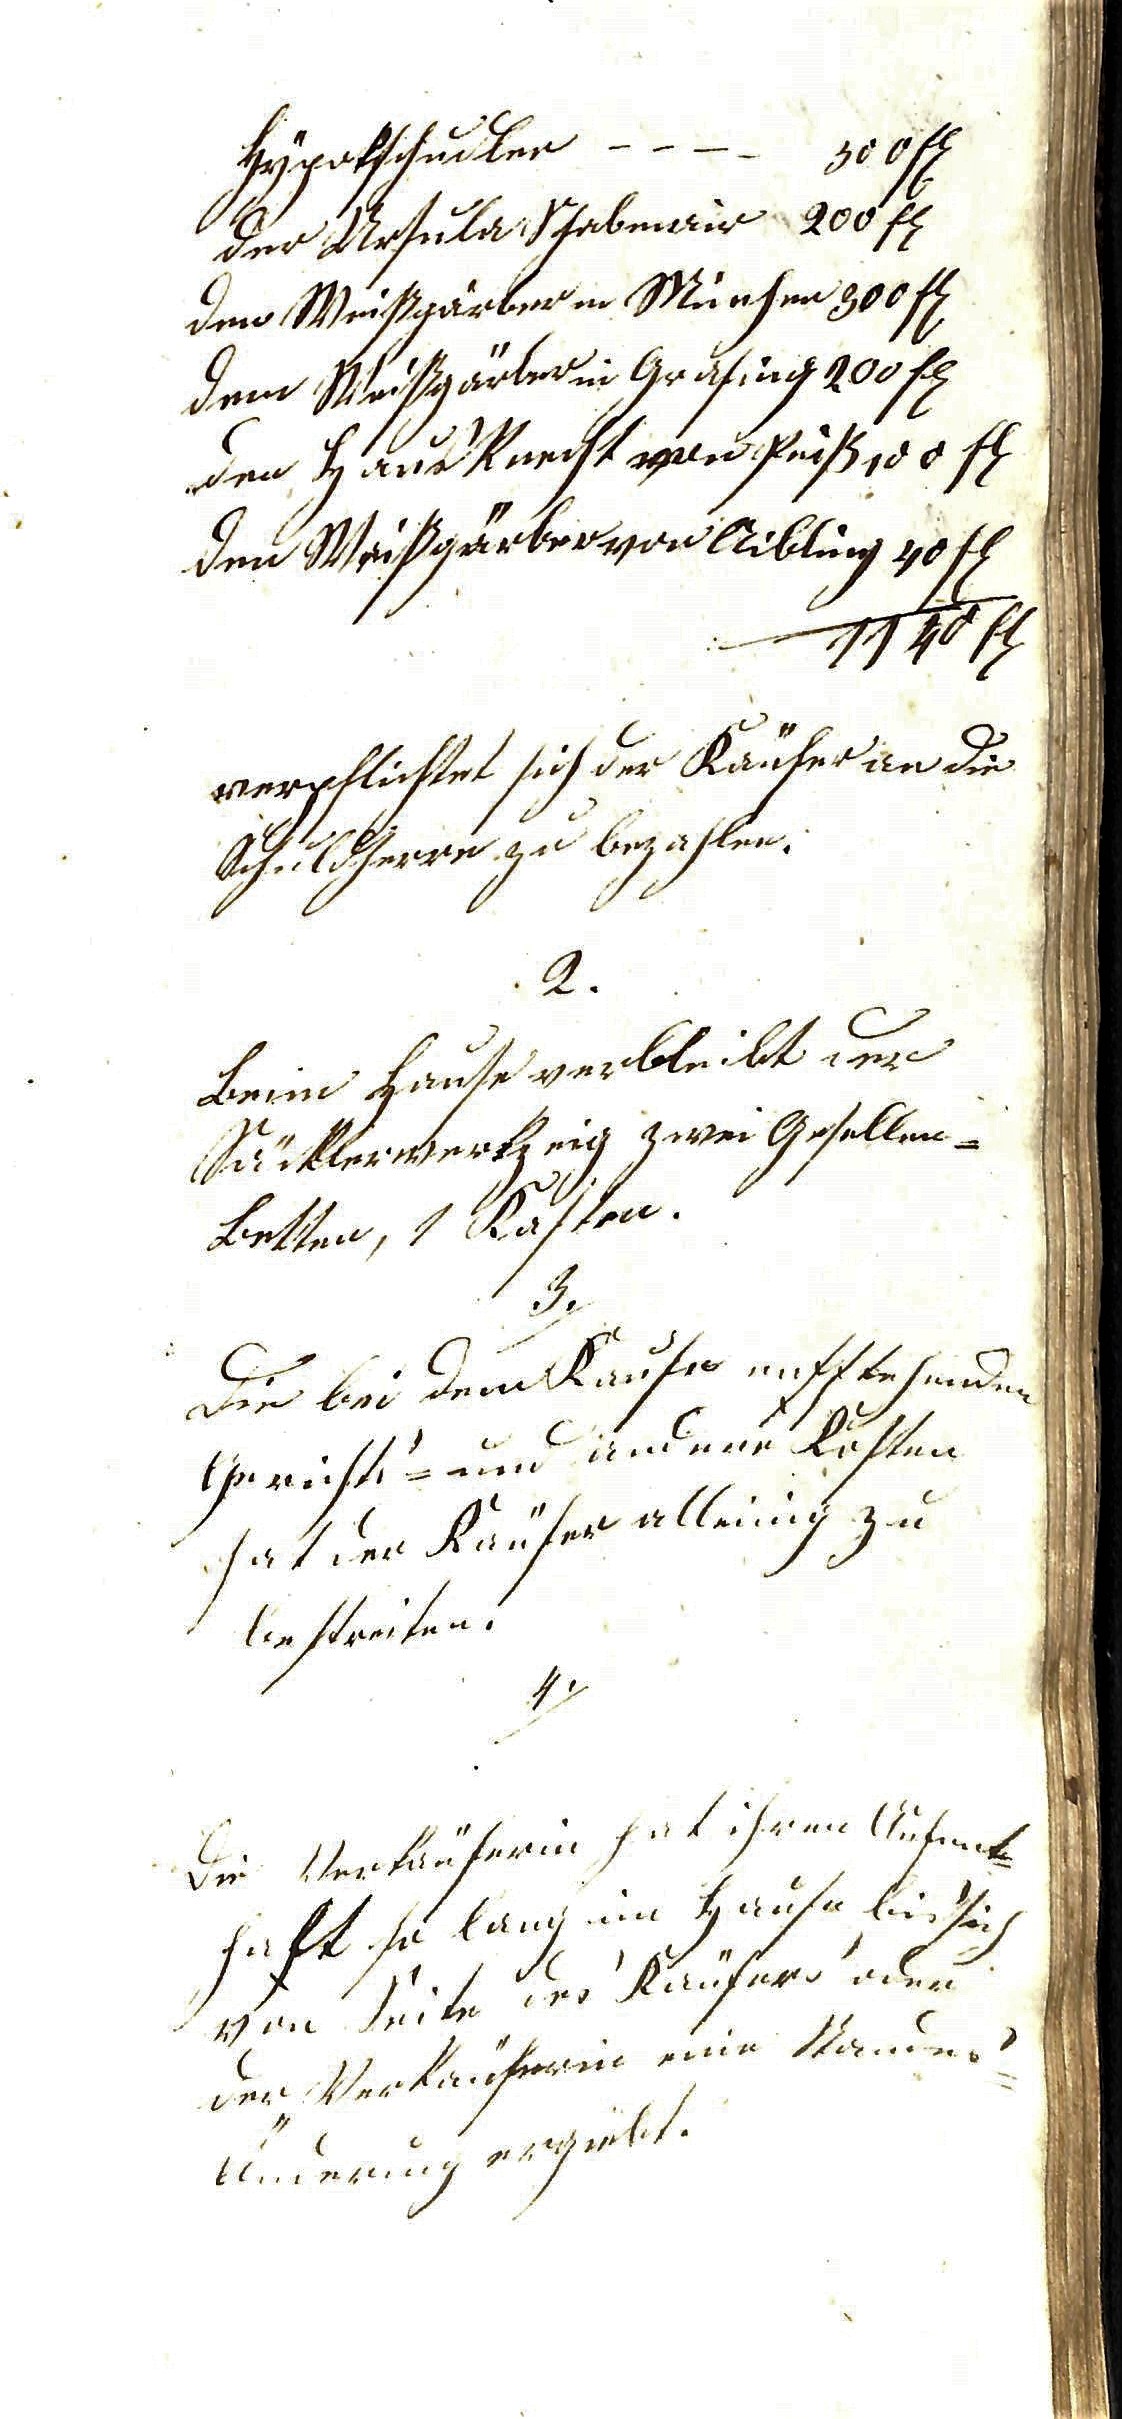 Hÿpotschulden - - - - 300 fl
der Ursula Schabmair 200 fl
dem Weißgärber in München 300 fl
dem Weißgärber in Grafing 200 fl
den Haus Knecht von Peiß 100 fl
den Weißgärber von Aibling 40 fl
1140 fl
verpflichtet sich der Käufer an die
Schuldherrn zu bezahlen.
2.
Beim Hause verbleibt der
Säcklerwerkzeig zwei Gesellen=
Betten, 1 Kasten.
3.
Die bei dem Kaufe entstehenden
Gerichts= und andere Kosten
hat der Käufer alleinig zu
bestreiten.
4.
Die Verkäuferin hat ihren Aufent=
halt so lang im Hause bis sich
von Seite des Käufers oder
der Verkäuferin eine Standes=
Änderung ergiebt.